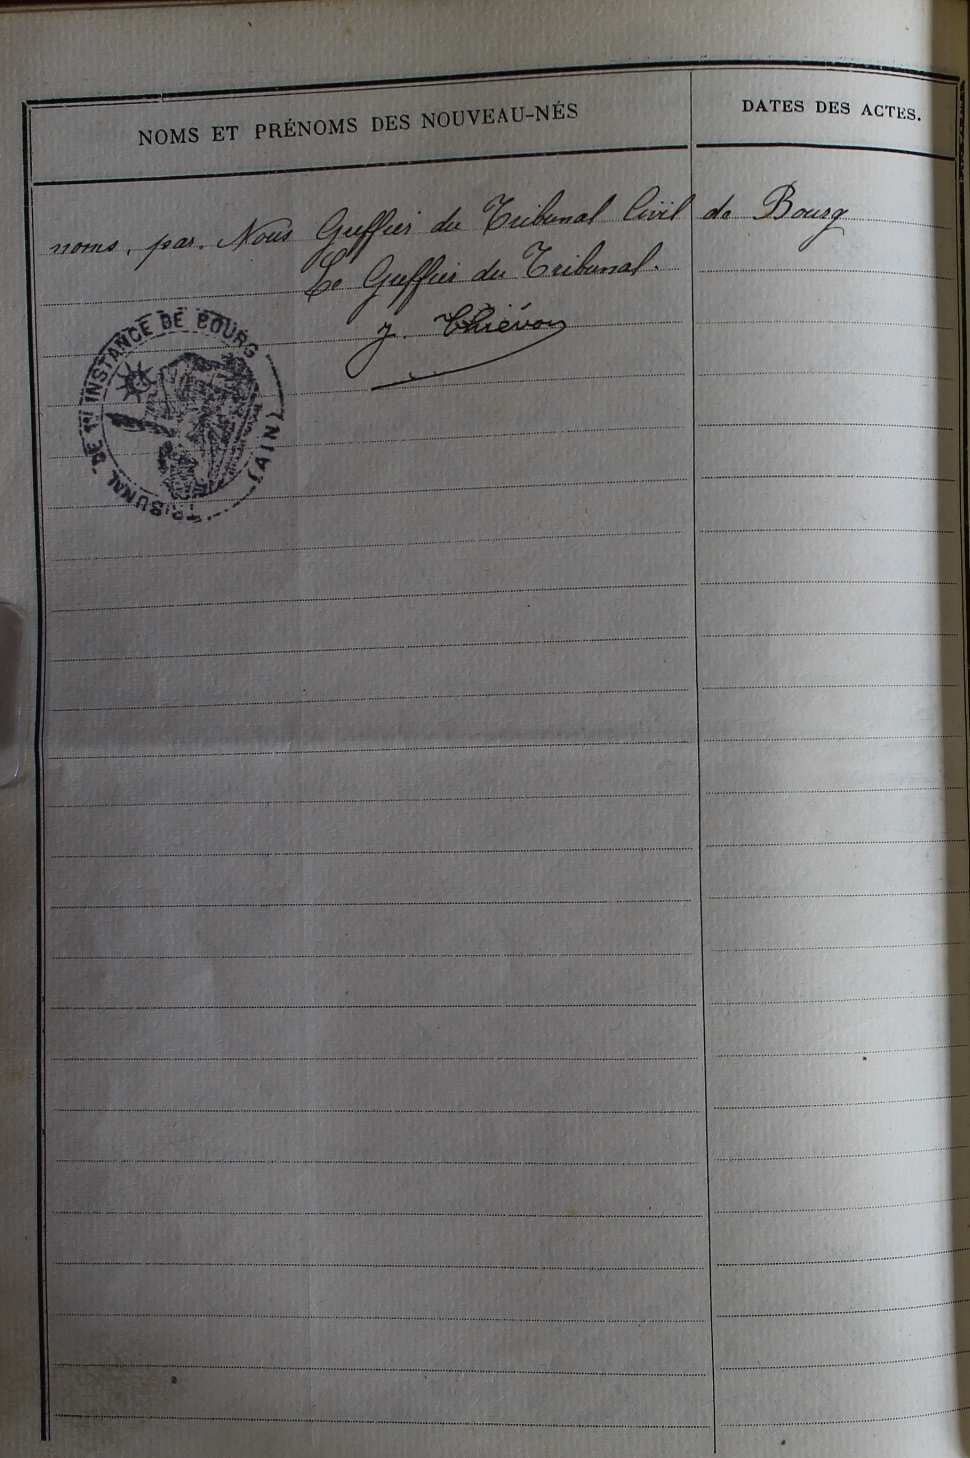 NOMS ET PRÉNOMS DES NOUVEAU-NÉS
DATES DES ACTES.
noms, par. Nous Greffier du Tribunal Civil de Bourg
Le Greffier du Tribunal.
J. Thiévon
TRIBUNAL DE 1re INSTANCE DE BOURG (AIN)